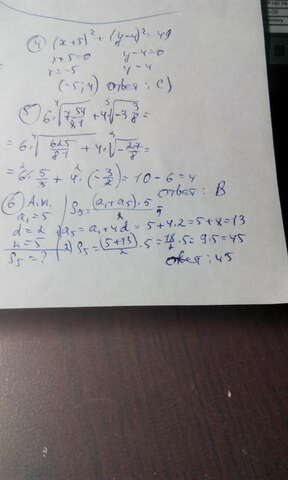 ④ (x+5)² + (y-4)² = 49
x+5=0 y-4=0
x=-5 y-4
(-5; 4) ответ: C)
⑤ 6·⁴√(7 58/81) + 4·³√(-3 3/8) =
= 6·⁴√(625/81) + 4·³√(-27/8) =
= 6·5/3 + 4·(-3/2) = 10 - 6 = 4
ответ: B
⑥ А.п. S₅ = (a₁+a₅)·5/2
a₁=5
d=2 a₅ = a₁+4d = 5+4·2 = 5+8 = 13
n=5 2) S₅ = (5+13)/2 · 5 = 18/2 · 5 = 9·5 = 45
S₅=? ответ: 45